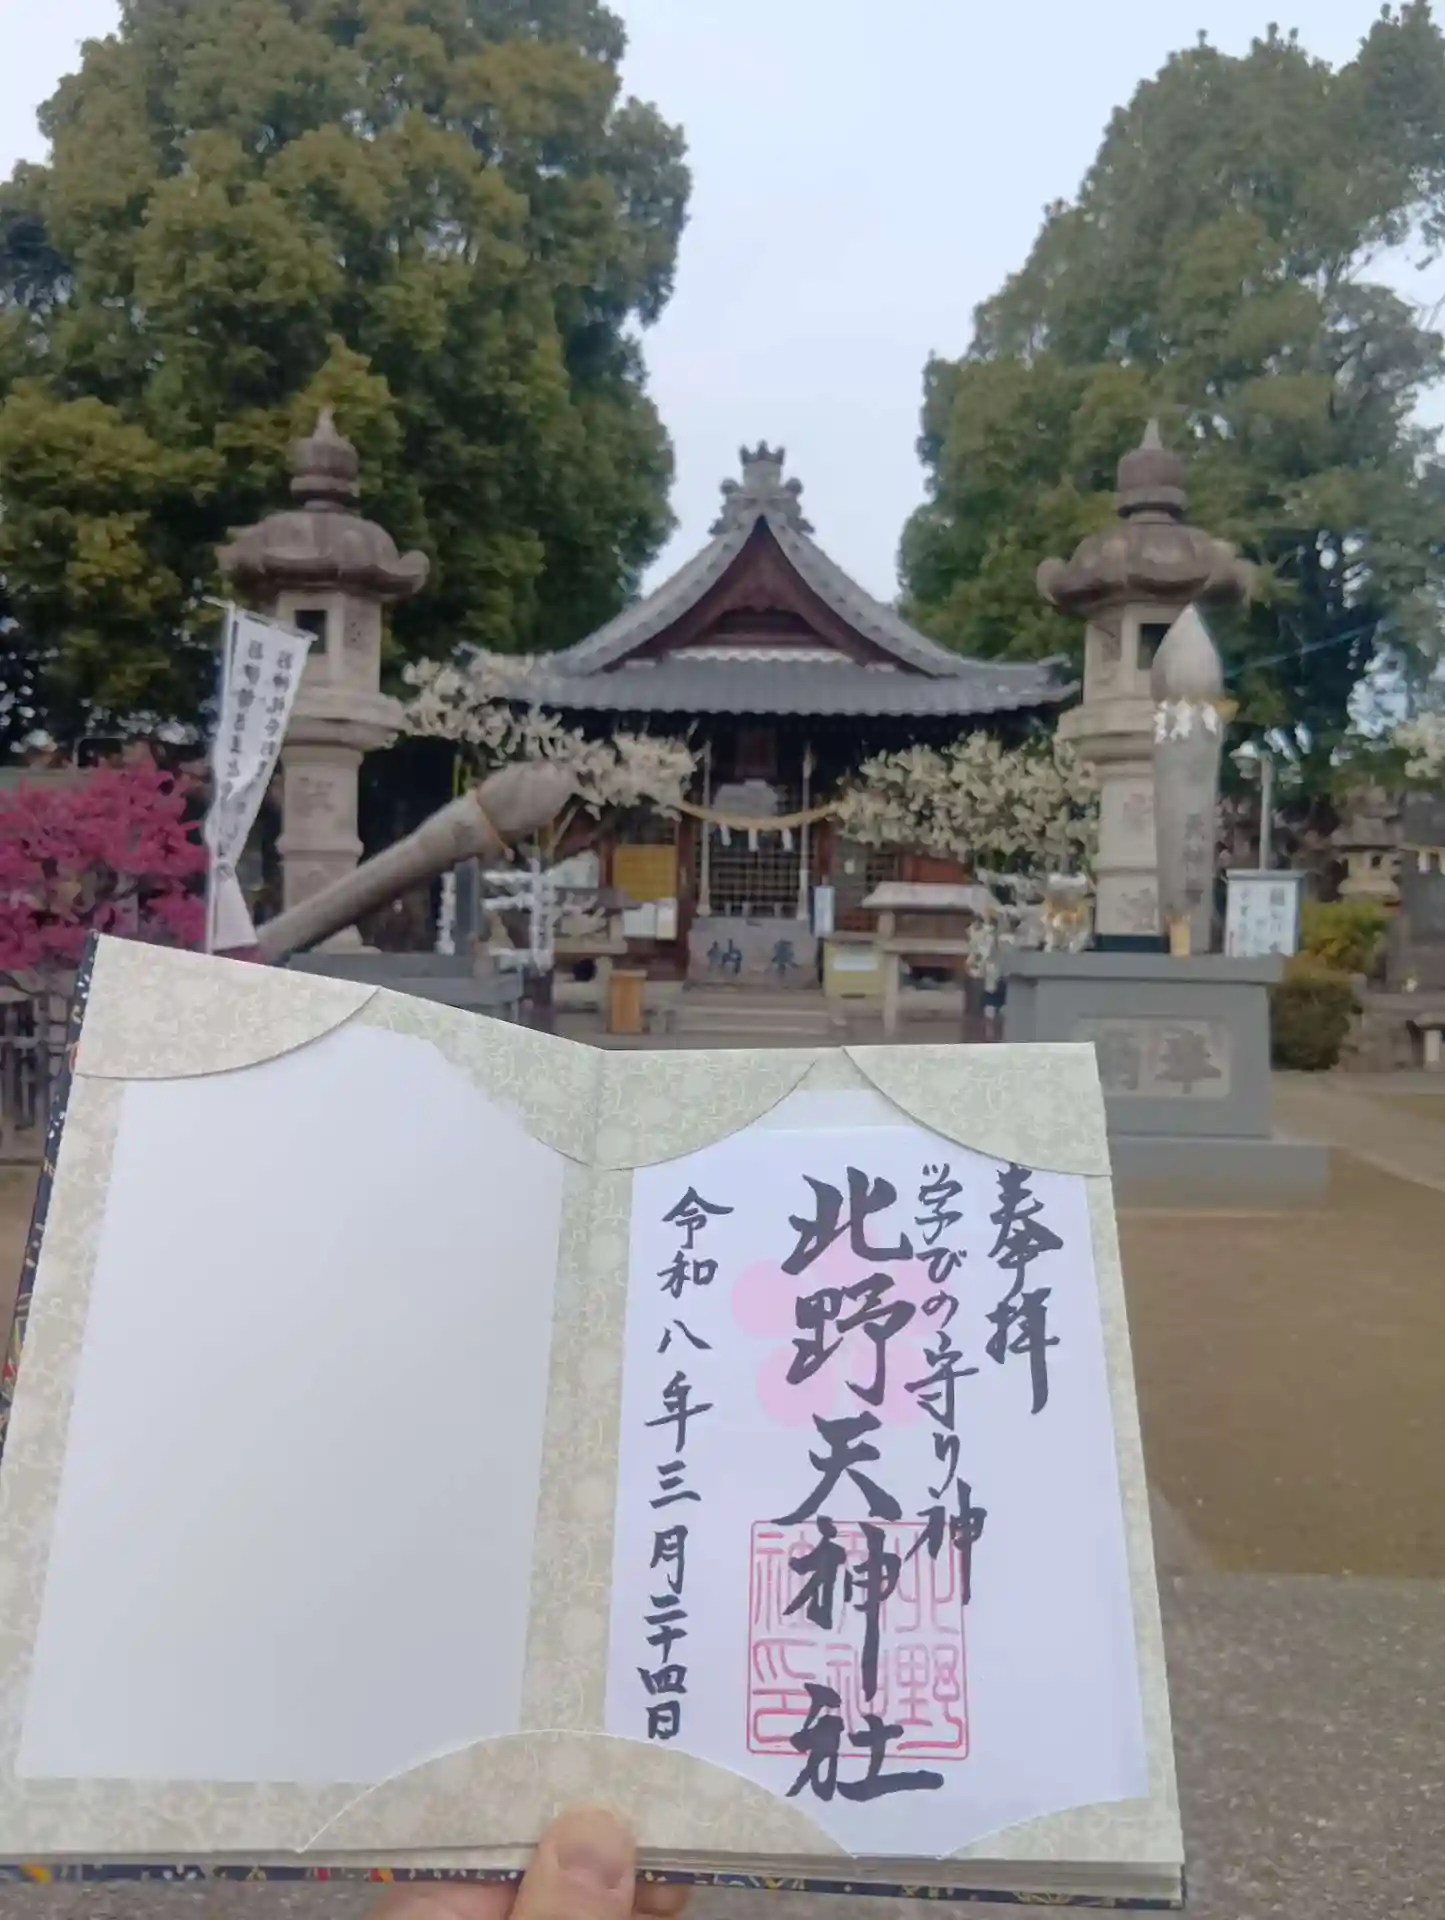 奉拝
学びの守り神
北野天神社
令和八年三月二十四日
北野
神社印
奉納